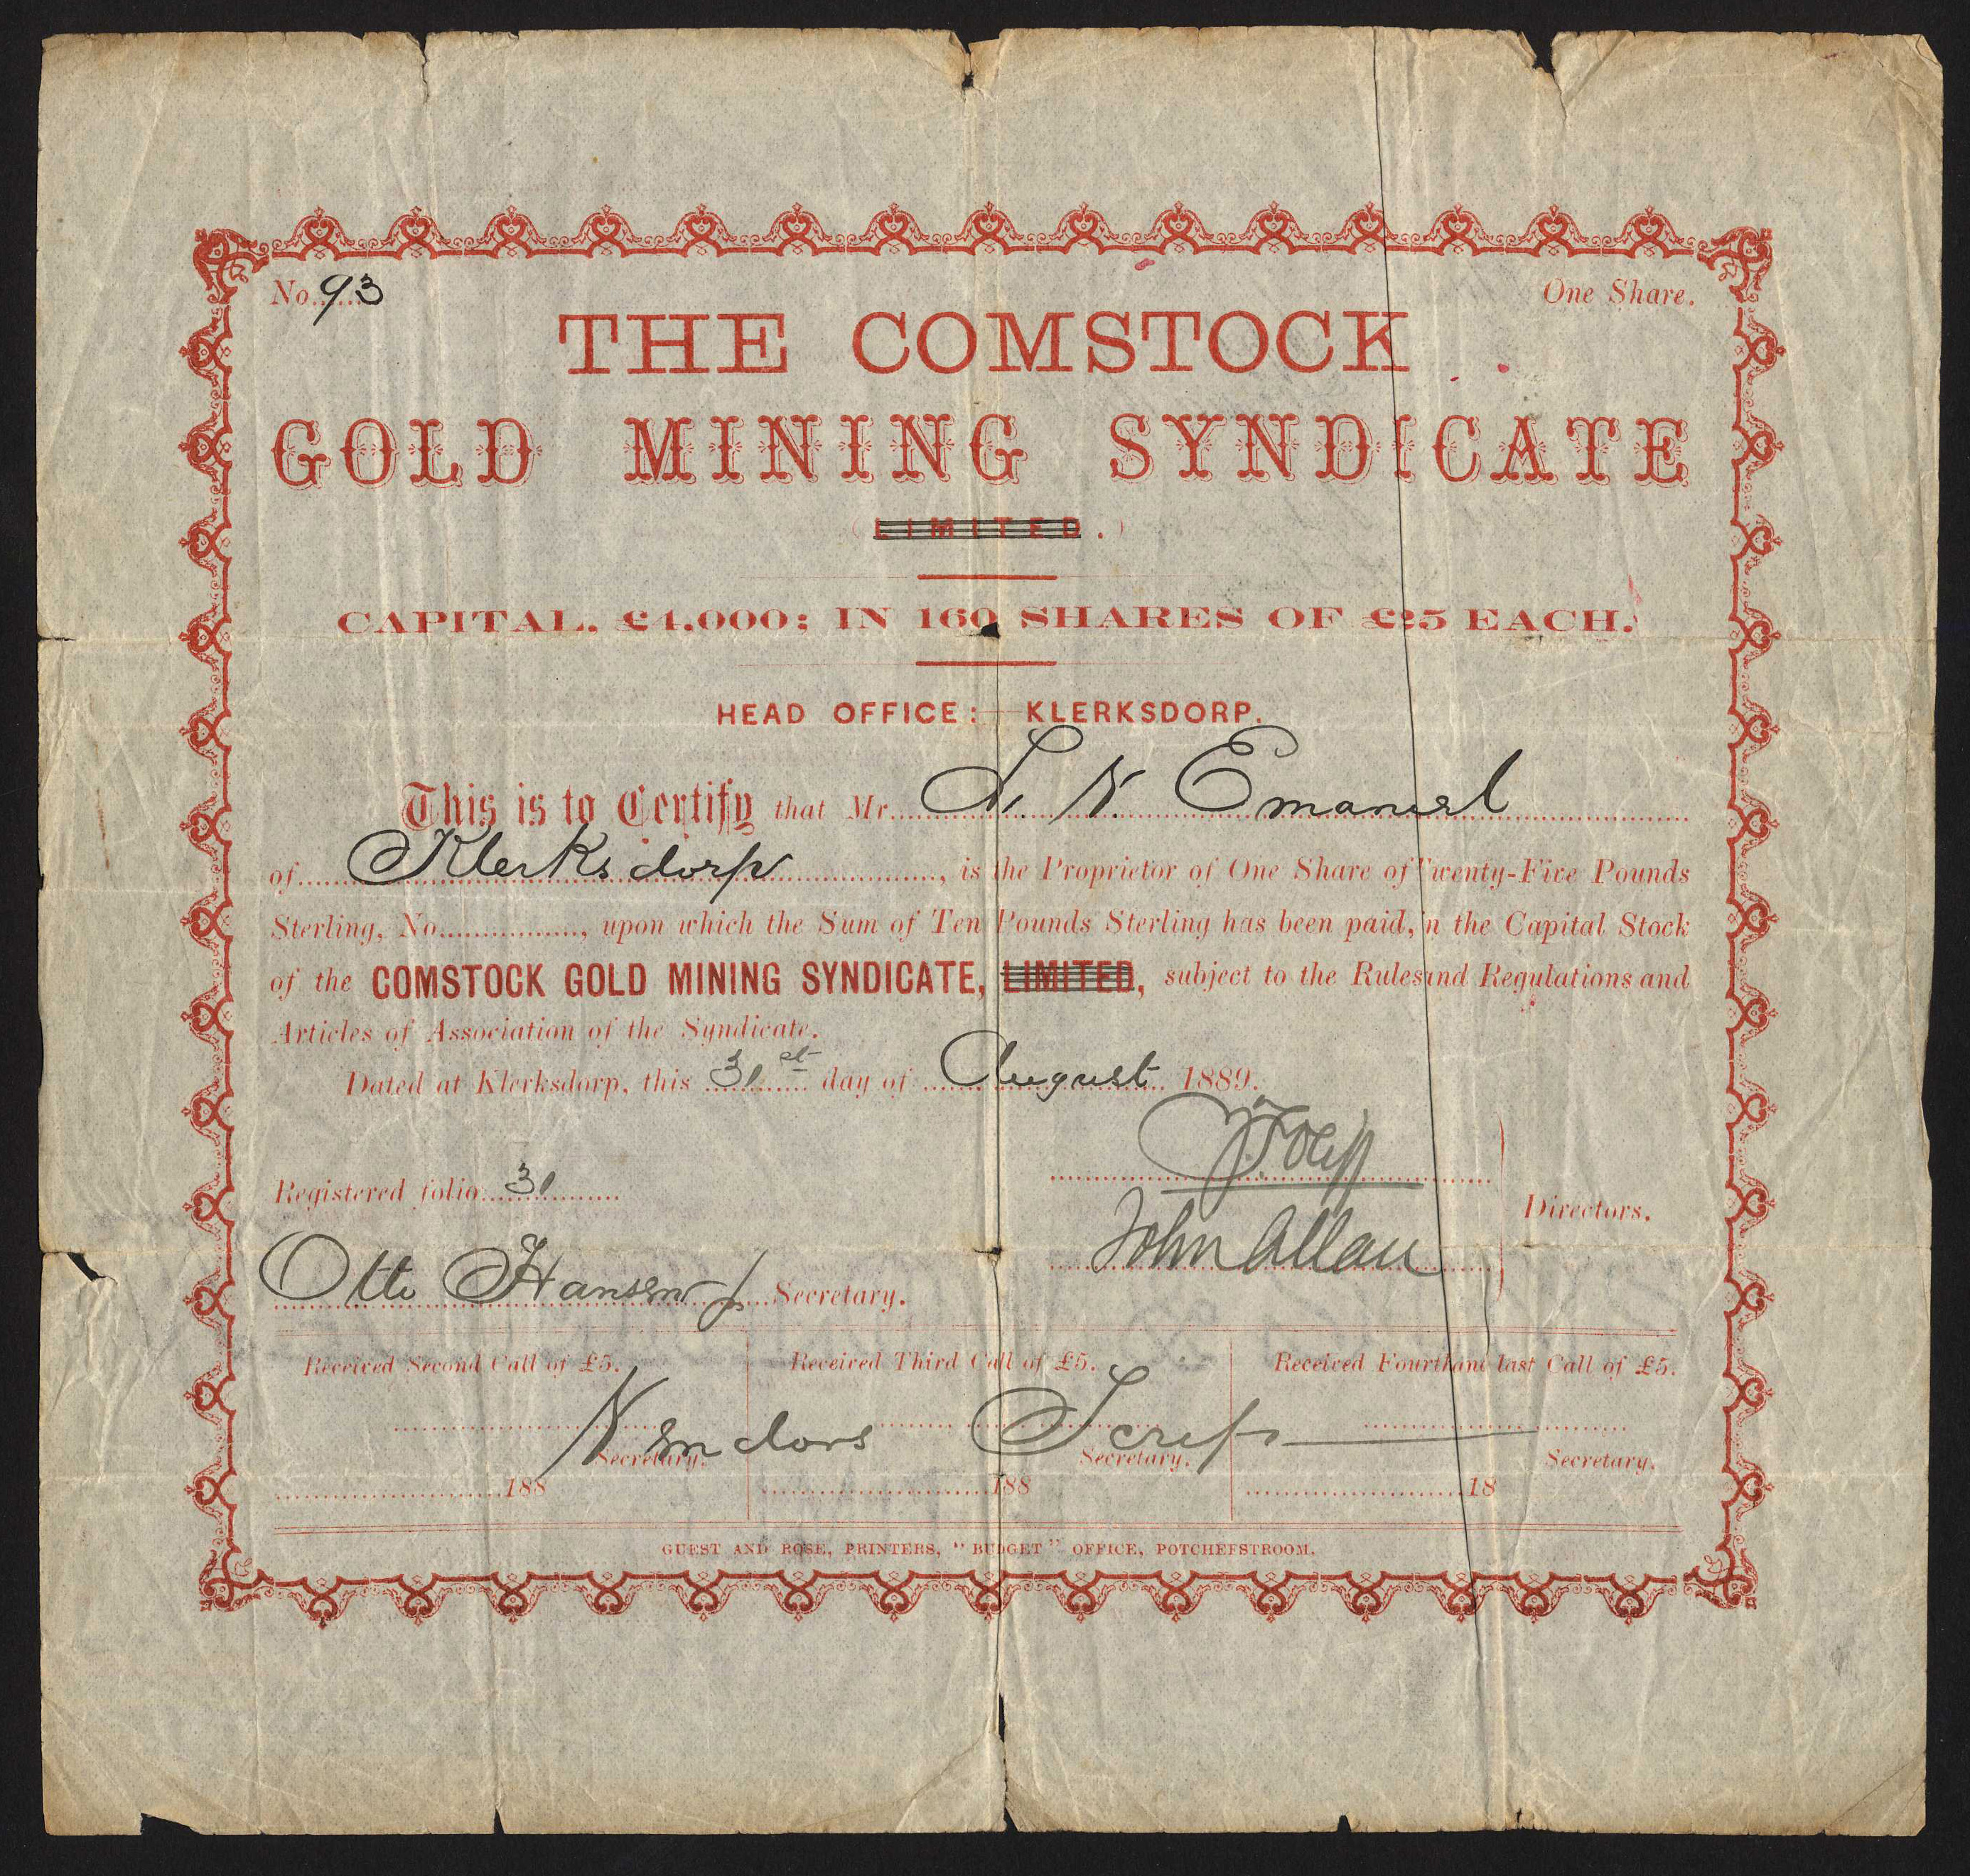 No. 93 One Share.
THE COMSTOCK
GOLD MINING SYNDICATE
(LIMITED.)
CAPITAL, £4,000: IN 160 SHARES OF £25 EACH.
HEAD OFFICE: KLERKSDORP.
This is to Certify that Mr. N. Emanuel
of Klerksdorp, is the Proprietor of One Share of Twenty-Five Pounds
Sterling, No. , upon which the Sum of Ten Pounds Sterling has been paid, in the Capital Stock
of the COMSTOCK GOLD MINING SYNDICATE, LIMITED, subject to the Rules and Regulations and
Articles of Association of the Syndicate.
Dated at Klerksdorp, this 31st day of August 1889.
Registered folio 31
John Allan
Directors.
Otto Hansen Secretary.
Received Second Call of £5. Received Third Call of £5. Received Fourth and last Call of £5.
Vendors Scrip
Secretary. Secretary. Secretary.
188 188 18
GUEST AND ROSE, PRINTERS, "BUDGET" OFFICE, POTCHEFSTROOM.